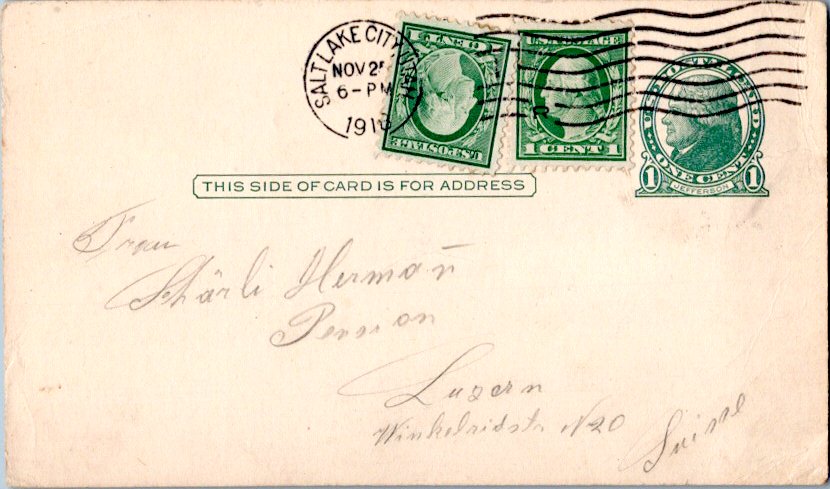 SALT LAKE CITY, UTAH
NOV 2
6-PM
191
U.S. POSTAGE
1 CENT 1
U.S. POSTAGE
1 CENT 1
ONE CENT
1 JEFFERSON 1
THIS SIDE OF CARD IS FOR ADDRESS
Frau
Schärli Hermañ
Pension
Luzern
Winkelridstr N20
Suisse